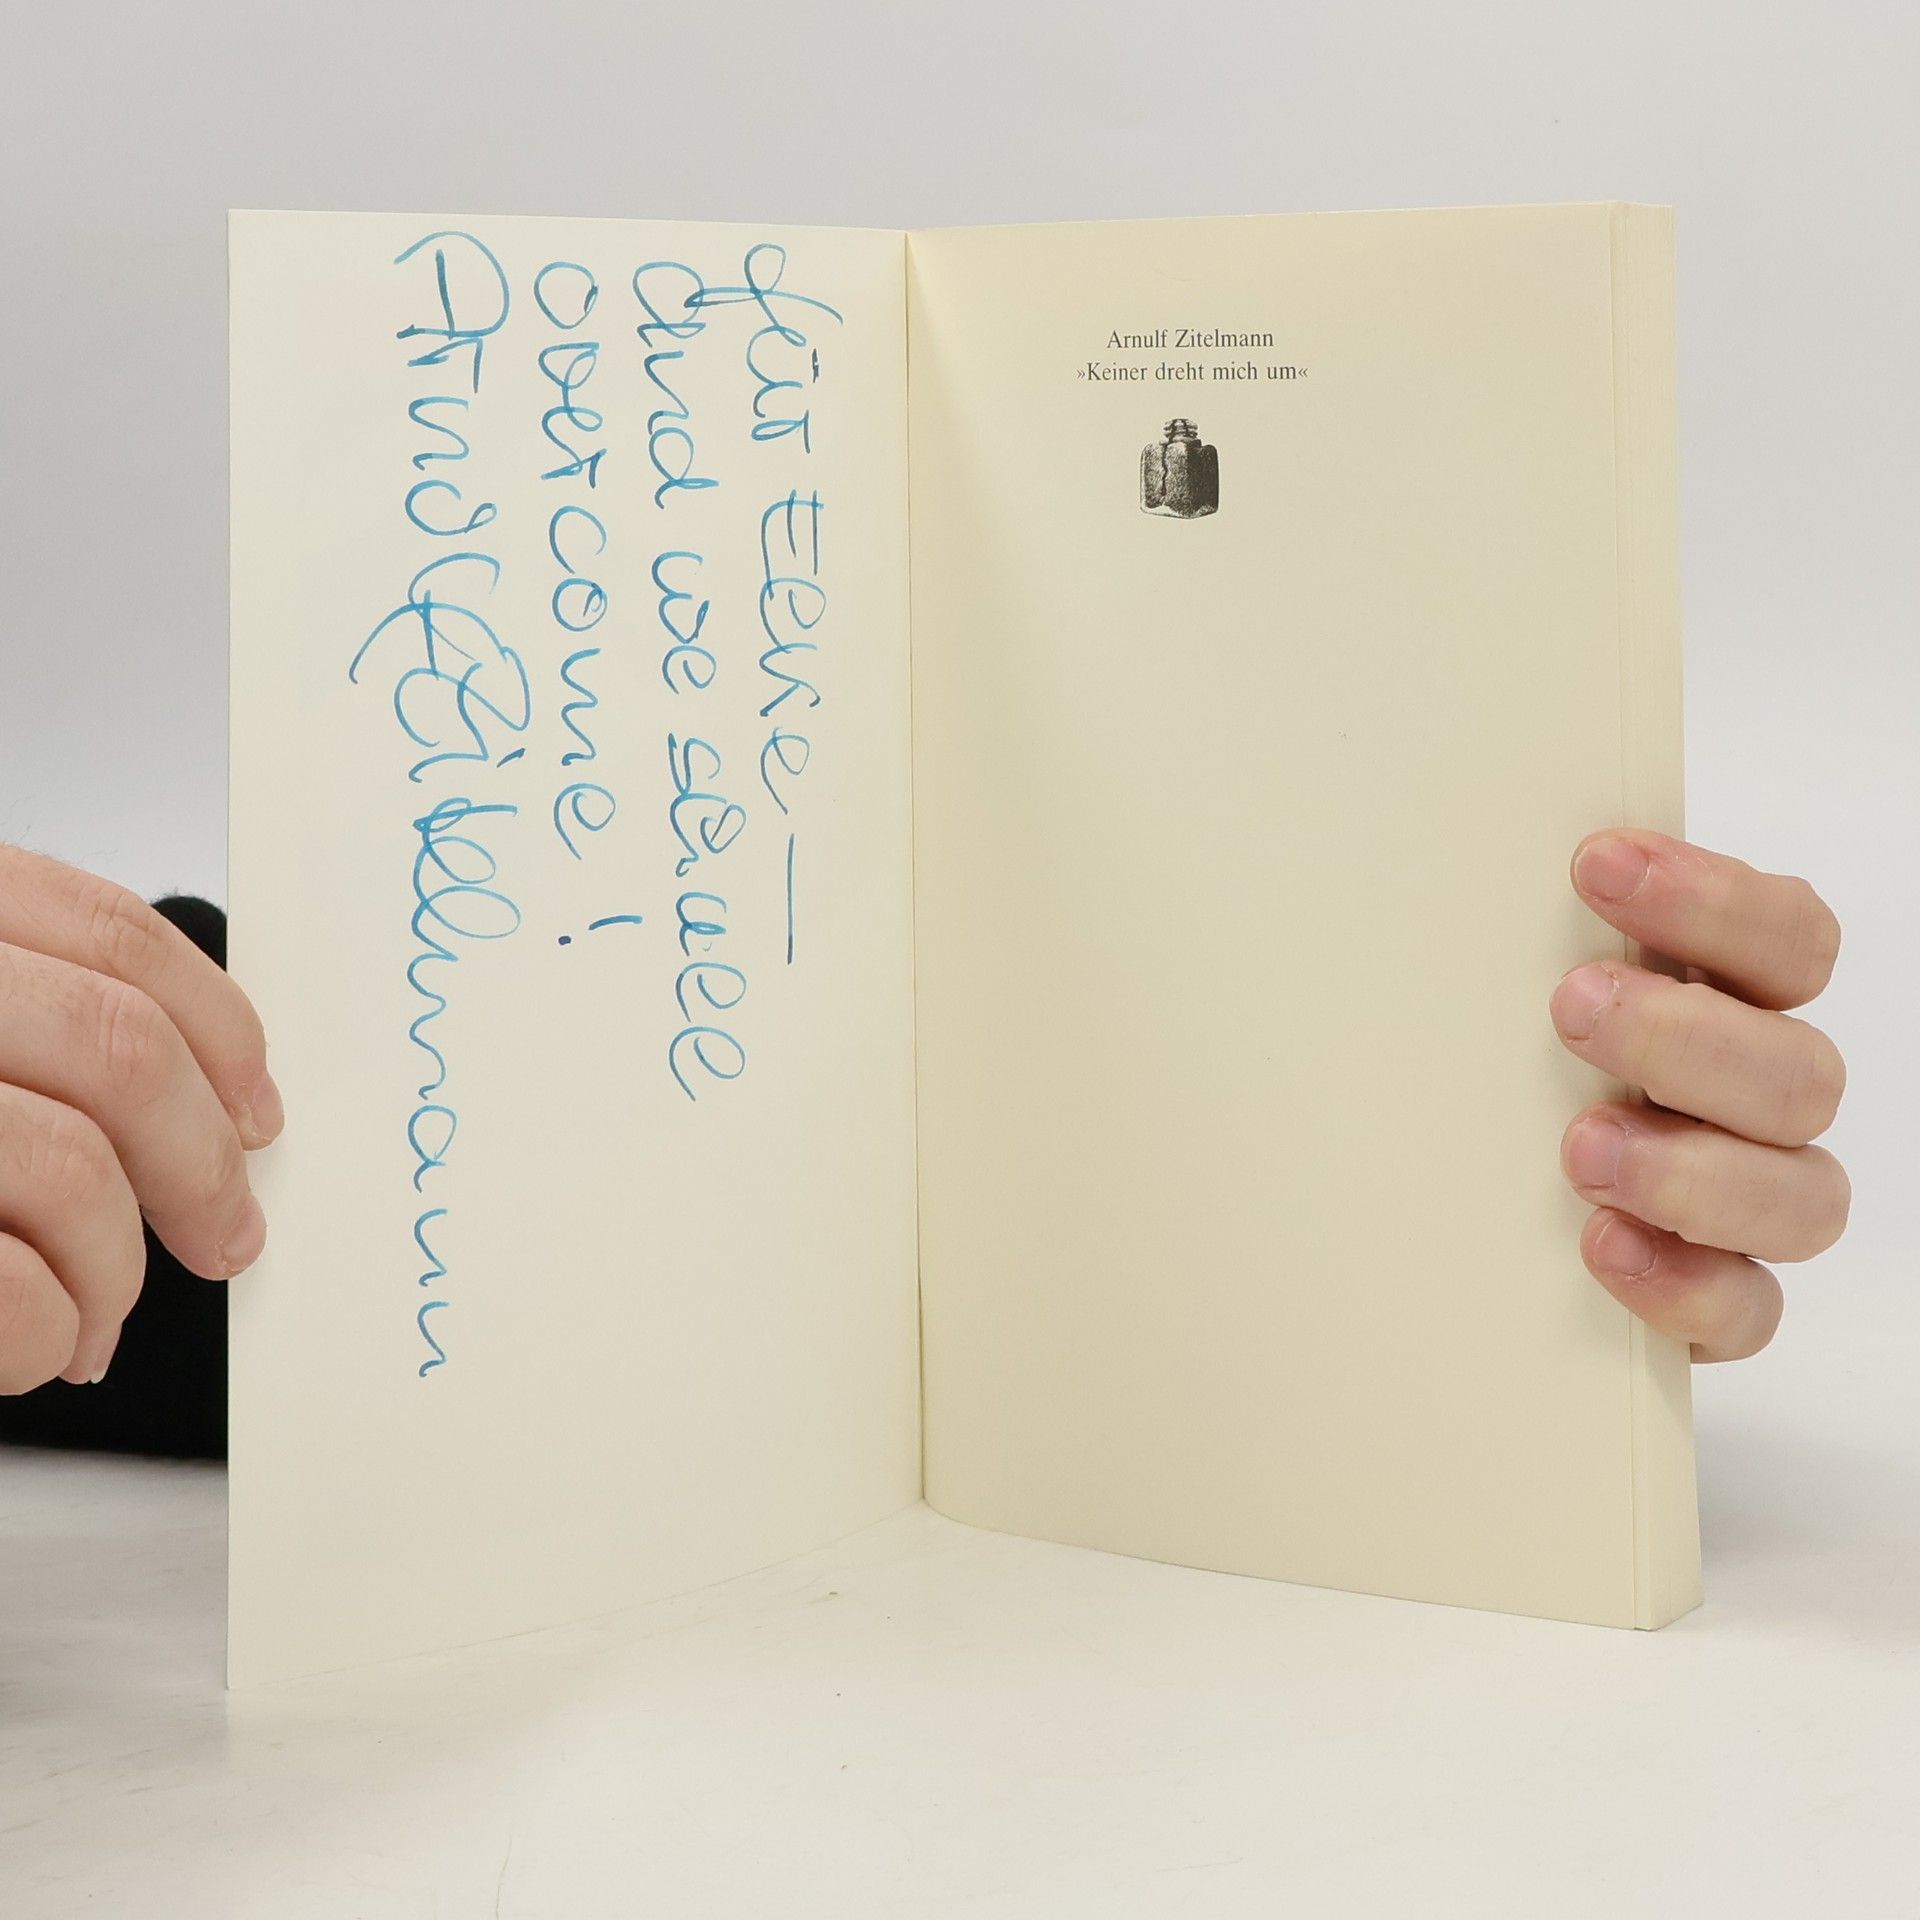 für Elke —
and we shall
overcome!
Arnulf Zitelmann
Arnulf Zitelmann
»Keiner dreht mich um«